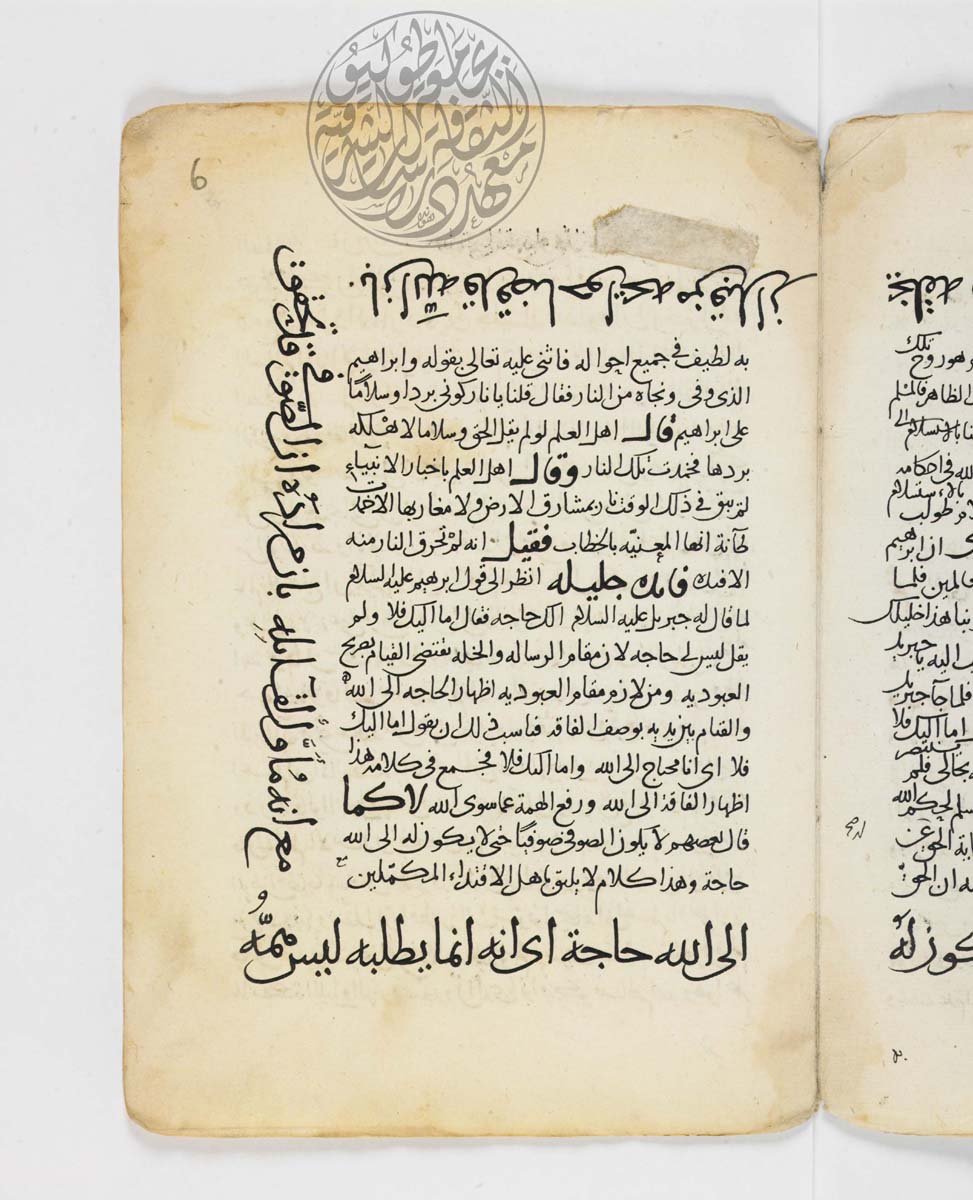 به لطيف في جميع احواله فاثنى عليه تعالى بقوله وابراهيم
الذى وفى ونجاه من النار فقال قلنا يانار كونى بردا وسلاما
على ابراهيم قال اهل العلم لو لم يقل الحق وسلاما لاهلكه
بردها فخمدت تلك النار وقال اهل العلم باخبار الانبيآء
لم يبق في ذلك الوقت نار بمشارق الارض ولا مغاربها الا خمدت
ظانة انها المعنيه بالخطاب فقيل انه لم تحرق النار منه
الا قيده فايده جليله انظر الى قول ابرهيم عليه السلام
لما قال له جبريل عليه السلام الك حاجه فقال اما اليك فلا ولم
يقل ليس لى حاجه لان مقام الرساله والخله يقتضى القيام بصريح
العبوديه ومن لازم مقام العبوديه اظهار الحاجه الى الله
والقيام بين يديه بوصف الفاقه فناسب ذلك ان يقول اما اليك
فلا اى انا محتاج الى الله واما اليك فلا فجمع فى كلامه هذا
اظهار الفاقة الى الله ورفع الهمة عما سوى الله لا كما
قال بعضهم لا يكون الصوفى صوفيا حتى لا يكون له الى الله
حاجة وهذا كلام لا يليق باهل الاقتداء المكملين
الى الله حاجة اى انه انما يطلبه ليس همه
مع انه مأول لقائله بان مراده ان الصوفى قد تحقق
بان الله قد قضا حوائجه من قبل ان
6